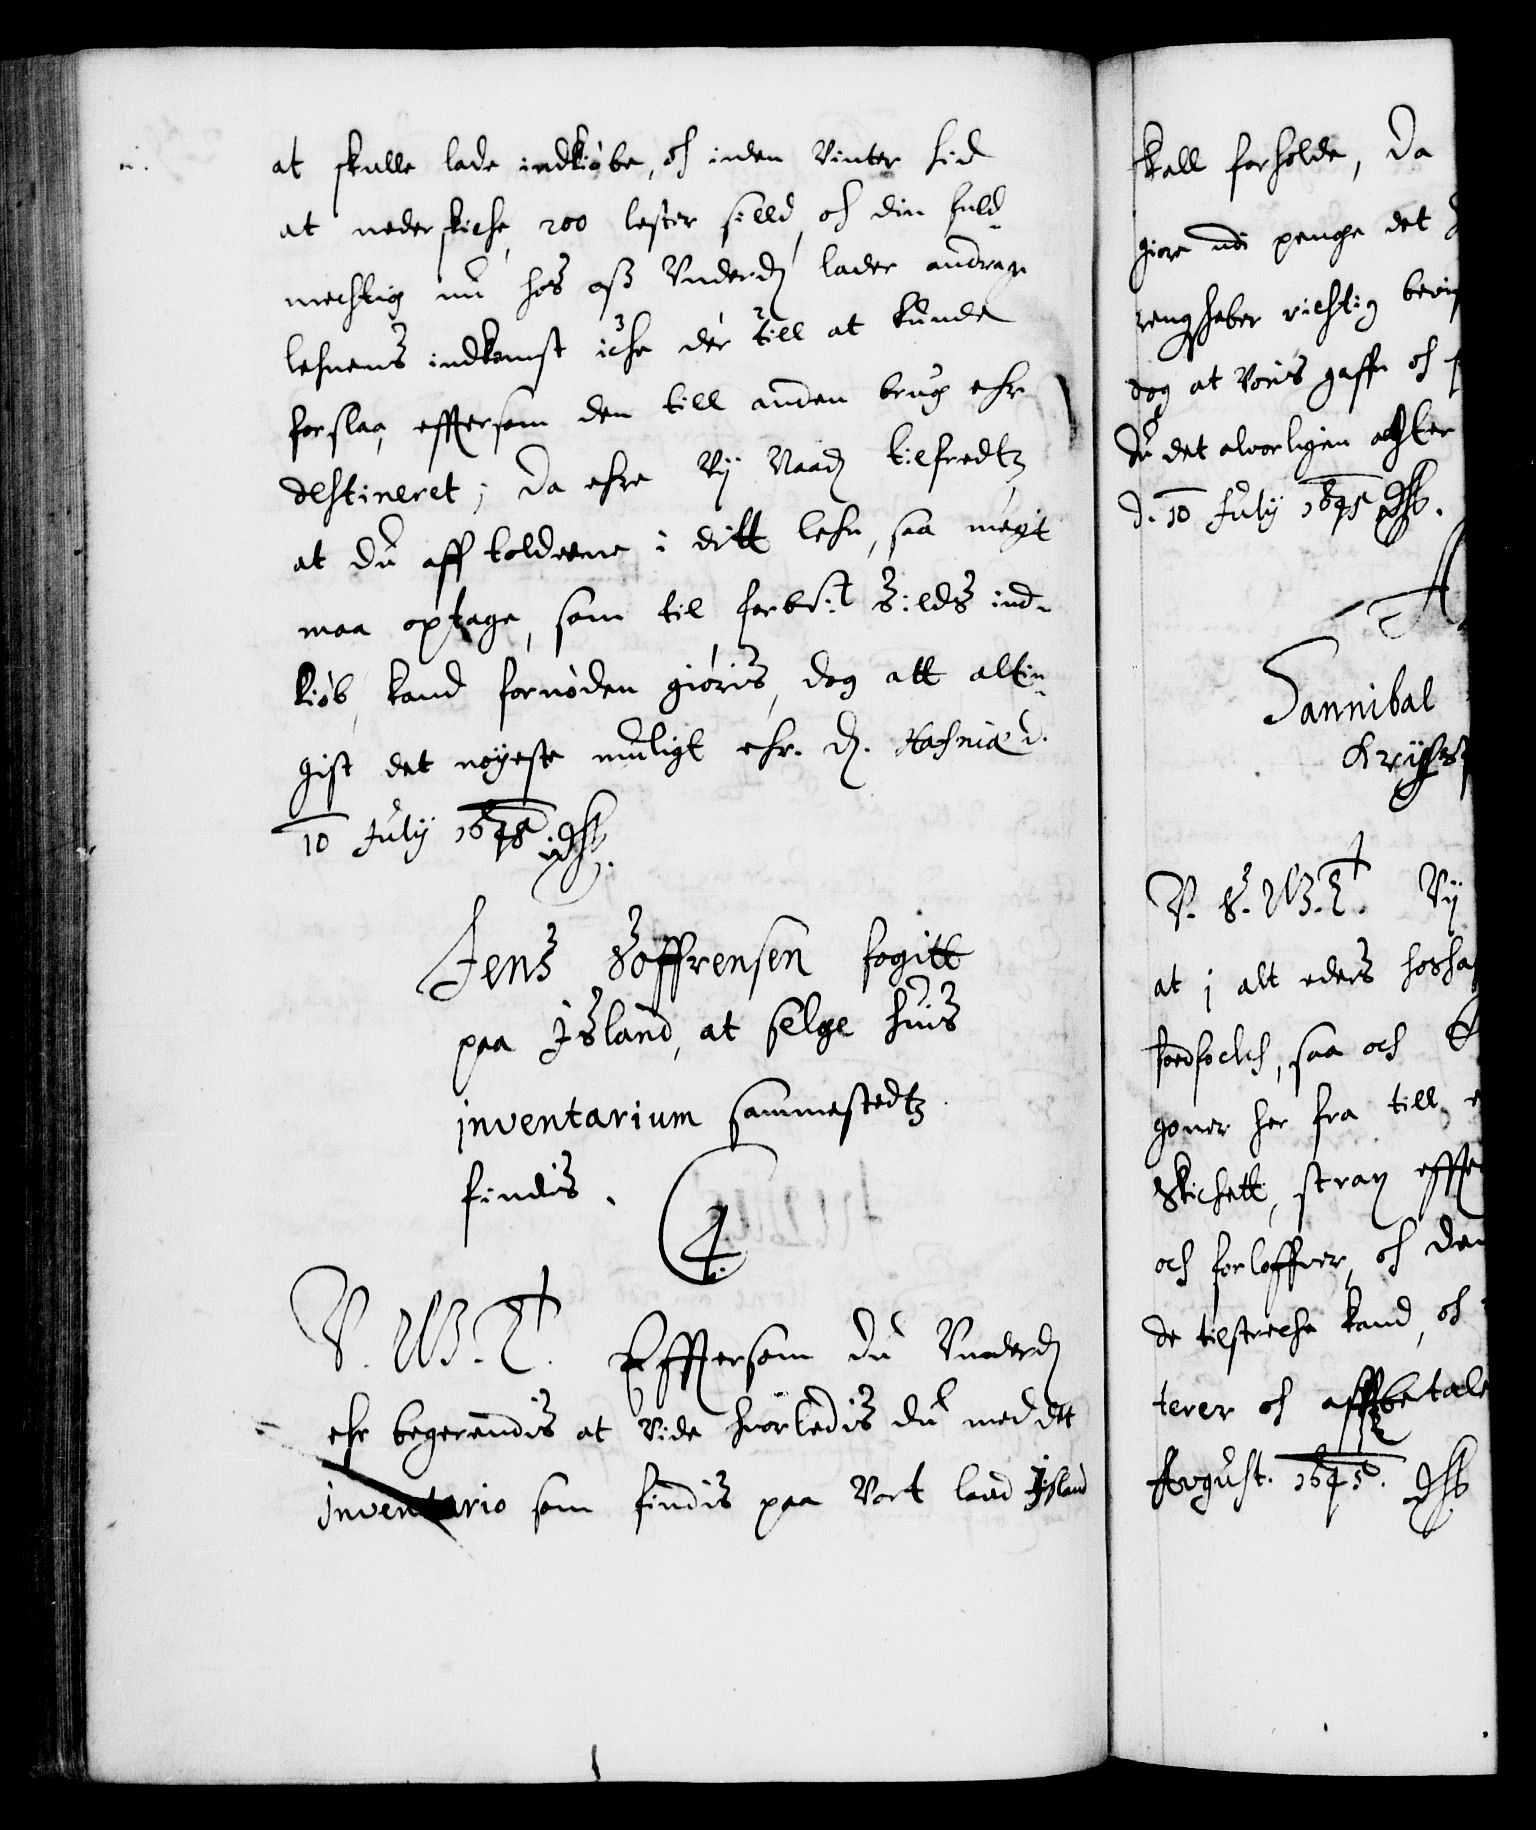 at skulle lade indkiøbe, och inden Vinter hid
at nederskiche, 200 lester silld, och din fuld-
mechtig nu hos oss Underd: lader andrage
lehnens indkomst iche der till at kunde
forslaa, efftersom den till anden brug ehr
destineret; Da ehre Vij Naad: tilfredtz
at du aff tolderne i ditt lehn, saa megit
maa optage, som til forbt: Silds ind-
kiøb, kand fornøden giøris, dog att altin-
gist det nøyeste muligt ehr. D. Hafniæ d.
10 July 1645
Jens Søffrensen fogitt
paa Jsland, at selge huis
inventarium sammestedtz
findis.
V. W. G. Efftersom du Vnderd:
ehr begerendis at Vide huorledis du med dtt
inventario som findis paa Vort land Jsland
skall forholde, Da
giøre udi penge det
rengskaber richtig bevi
dog at Voris gaffn och
du det alvorligen achter
d. 10 July 1645
Hannibal
V. S. W. G. Vij
at j alt eders hosha
fodfolch, saa och
goner her fra till
skichett, strax effte
och forløffver, och den
de tilstreche kand, och
terer och affbetale
August. 1645.